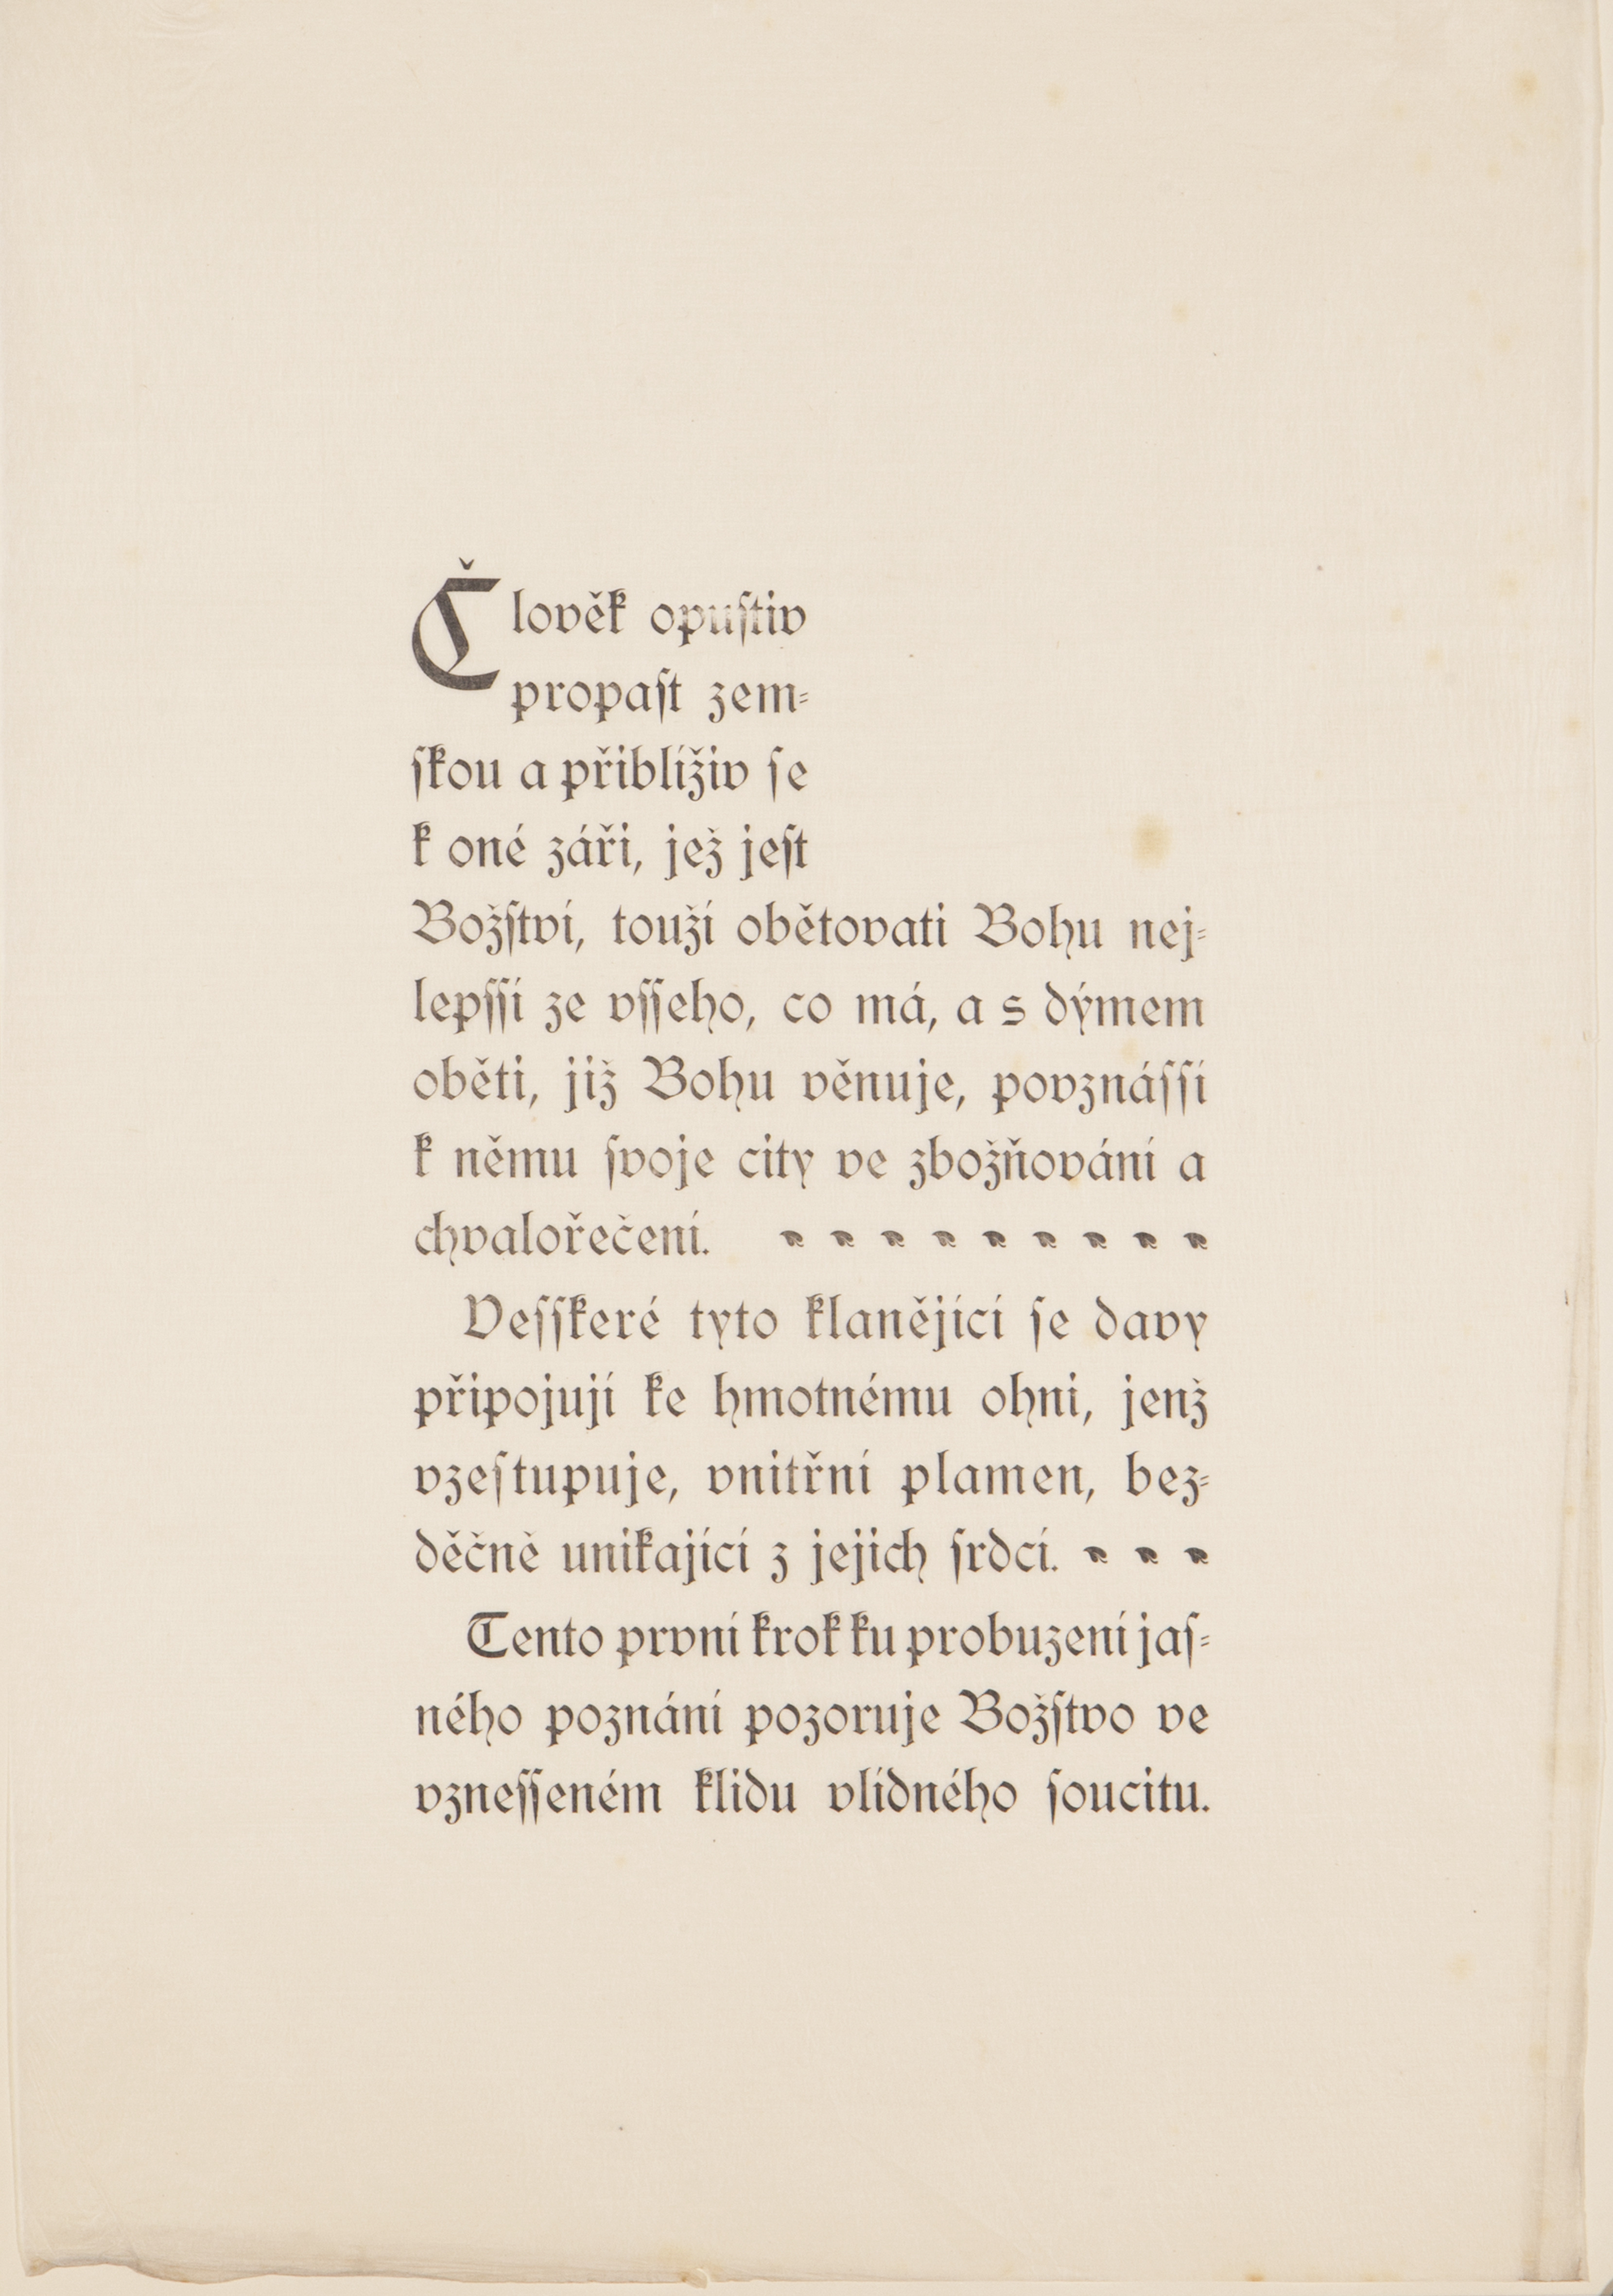 Člověk opuſtiv
propaſt zem⸗
ſkou a přiblíživ ſe
k oné záři, jež jeſt
Božſtví, touží obětovati Bohu nej⸗
lepſſí ze vſſeho, co má, a s dýmem
oběti, již Bohu věnuje, povznáſſí
k němu ſvoje city ve zbožňování a
chvalořečení.
Veſſkeré tyto klanějící ſe davy
připojují ke hmotnému ohni, jenž
vzeſtupuje, vnitřní plamen, bez⸗
děčně unikající z jejich ſrdcí.
Tento první krok ku probuzení jaſ⸗
ného poznání pozoruje Božſtvo ve
vzneſſeném klidu vlídného ſoucitu.